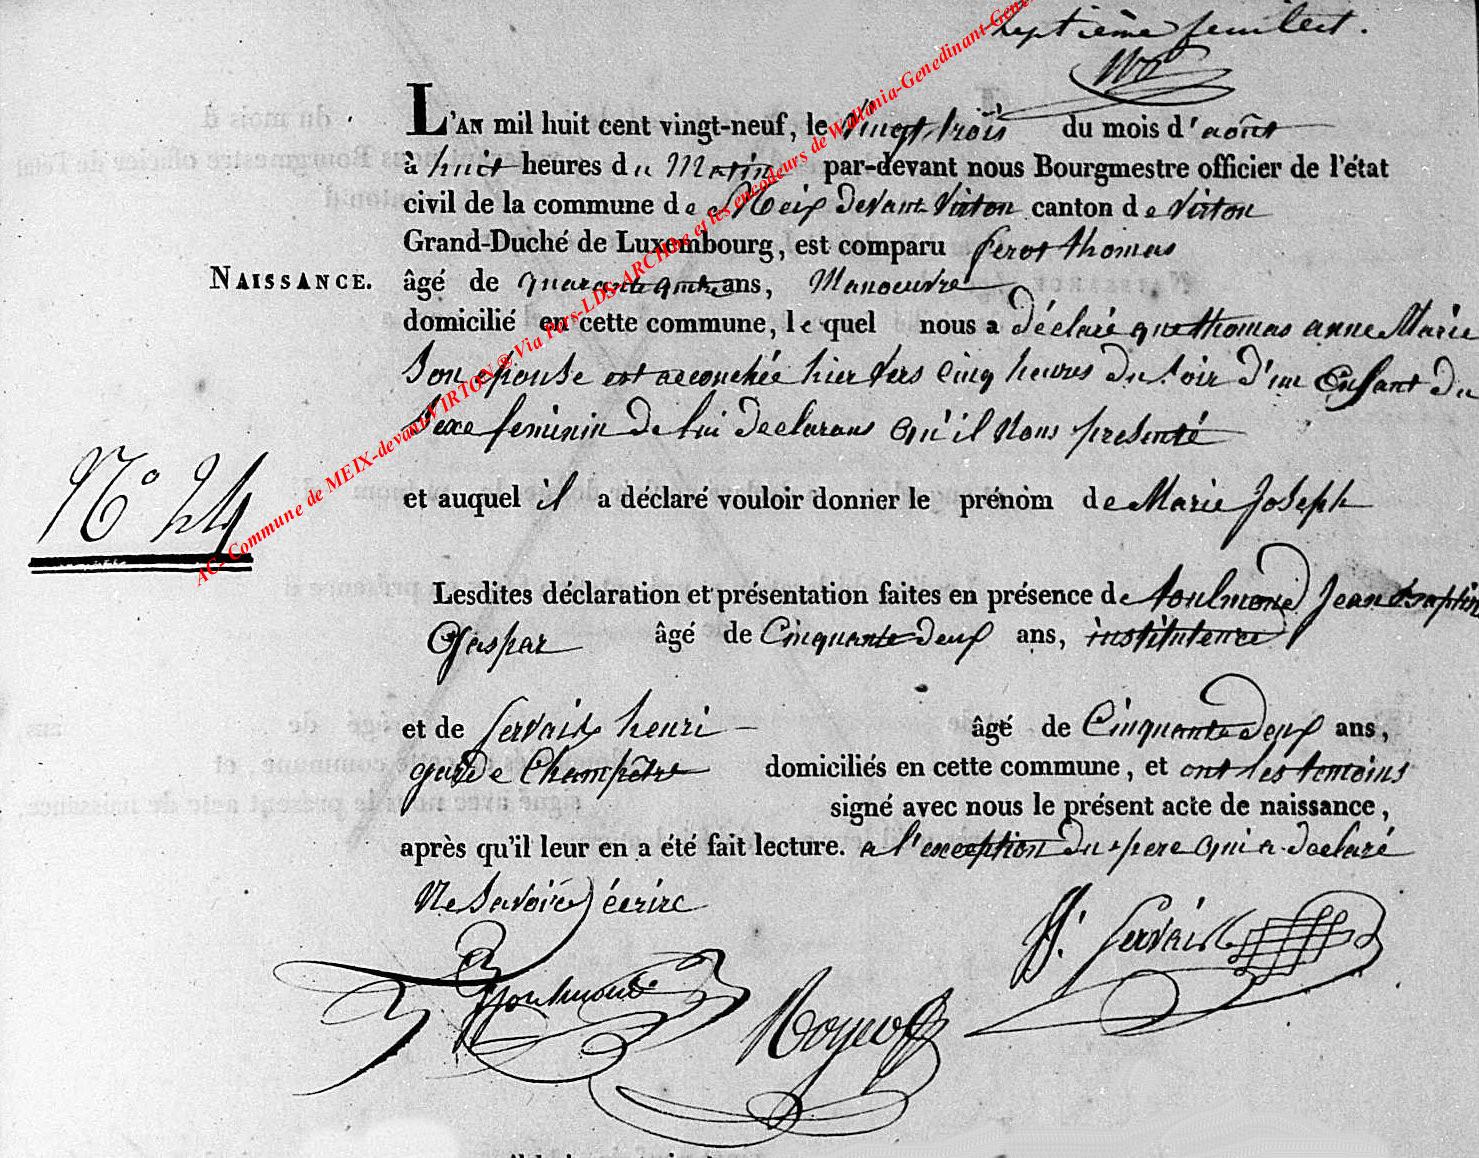 septième feuillet.
L'AN mil huit cent vingt-neuf, le Vingt trois du mois d'août
à huit heures du Matin par-devant nous Bourgmestre officier de l'état
civil de la commune de Meix devant Virton canton de Virton
Grand-Duché de Luxembourg, est comparu ferot thomas
NAISSANCE.
âgé de quarante quatre ans, Manoeuvre
domicilié en cette commune, le quel nous a déclaré que thomas anne Marie
Son épouse est accouchée hier vers cinq heures du soir d'un Enfant du
Sexe féminin de lui declarans qu'il Nous presenté
N° 24
et auquel il a déclaré vouloir donner le prénom de Marie Joseph
Lesdites déclaration et présentation faites en présence de toulmond Jean baptiste
Gaspar âgé de Cinquante deux ans, instituteur
et de Servais henri âgé de Cinquante deux ans,
garde Champêtre domiciliés en cette commune, et ont les temoins
signé avec nous le présent acte de naissance,
après qu'il leur en a été fait lecture. a l'exception du pere qui a declaré
Ne Savoir écrire
H. Servais
Toulmond
AC- Commune de MEIX-devant-VIRTON ® Via Pars-LDS-ARCHbe et les encodeurs de Wallonia-Genedinant-Gene